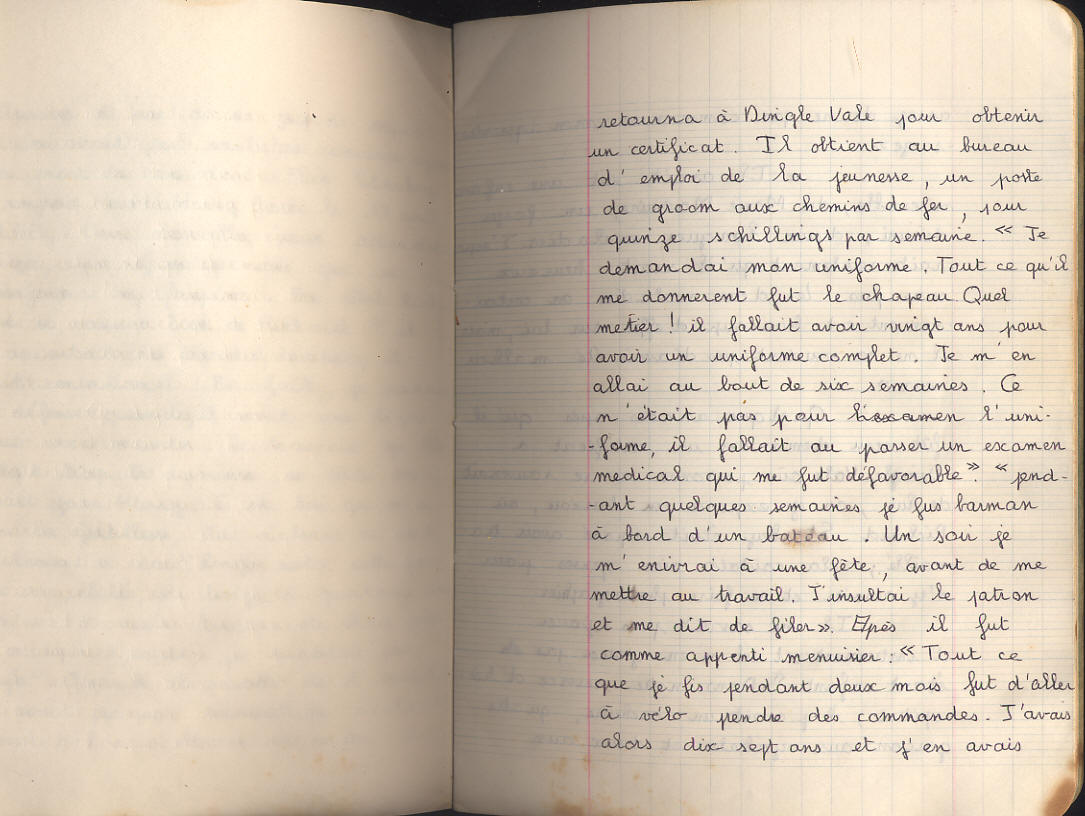 retourna à Dingle Vale pour obtenir
un certificat. Il obtient au bureau
d'emploi de la jeunesse, un poste
de groom aux chemins de fer, pour
quinze schillings par semaine. « Je
demandai mon uniforme. Tout ce qu'il
me donnerent fut le chapeau. Quel
metier ! il fallait avoir vingt ans pour
avoir un uniforme complet. Je m'en
allai au bout de six semaines. Ce
n'était pas pour l'examen l'uni-
-forme, il fallait au passer un examen
medical qui me fut défavorable ». « pend-
-ant quelques semaines je fus barman
à bord d'un bateau. Un soir je
m'enivrai à une fête, avant de me
mettre au travail. J'insultai le patron
et me dit de filer ». Epès il fut
comme apprenti menuisier : « Tout ce
que je fis pendant deux mois fut d'aller
à vélo pendre des commandes. J'avais
alors dix sept ans et j'en avais